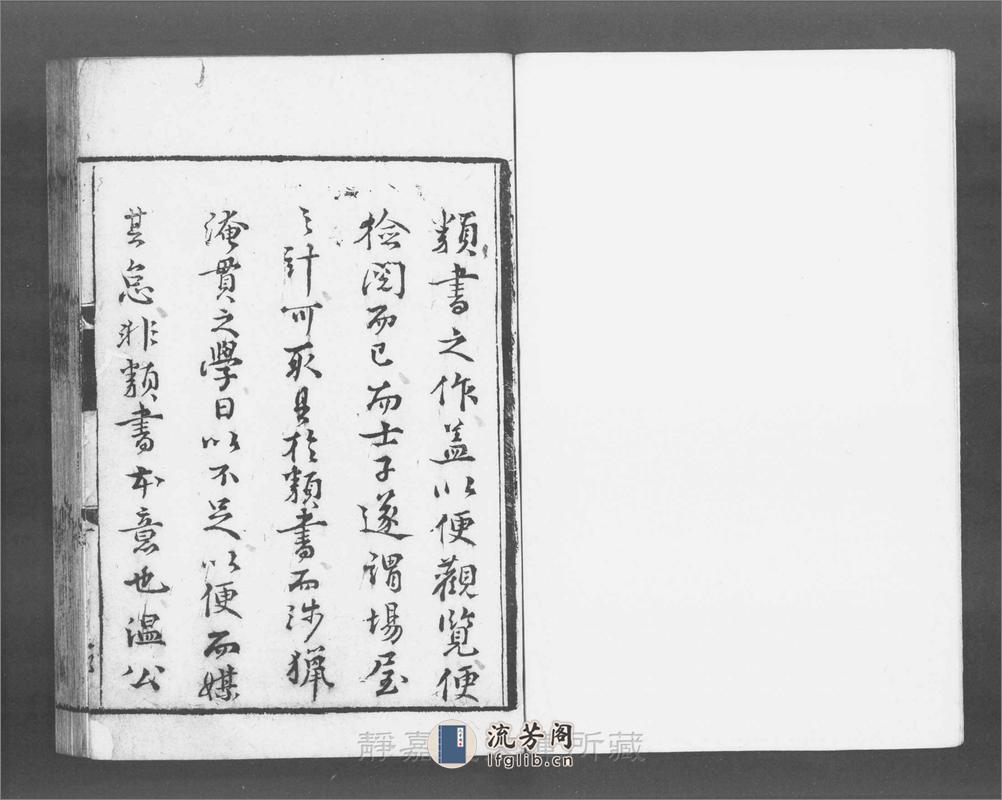 類書之作蓋以便觀覽便
檢閱而已而士子遂謂塲屋
之計可取具於類書而涉獵
淹貫之學日以不足以便而媒
其怠非類書本意也溫公
靜嘉 所藏
流芳阁
lfglib.cn